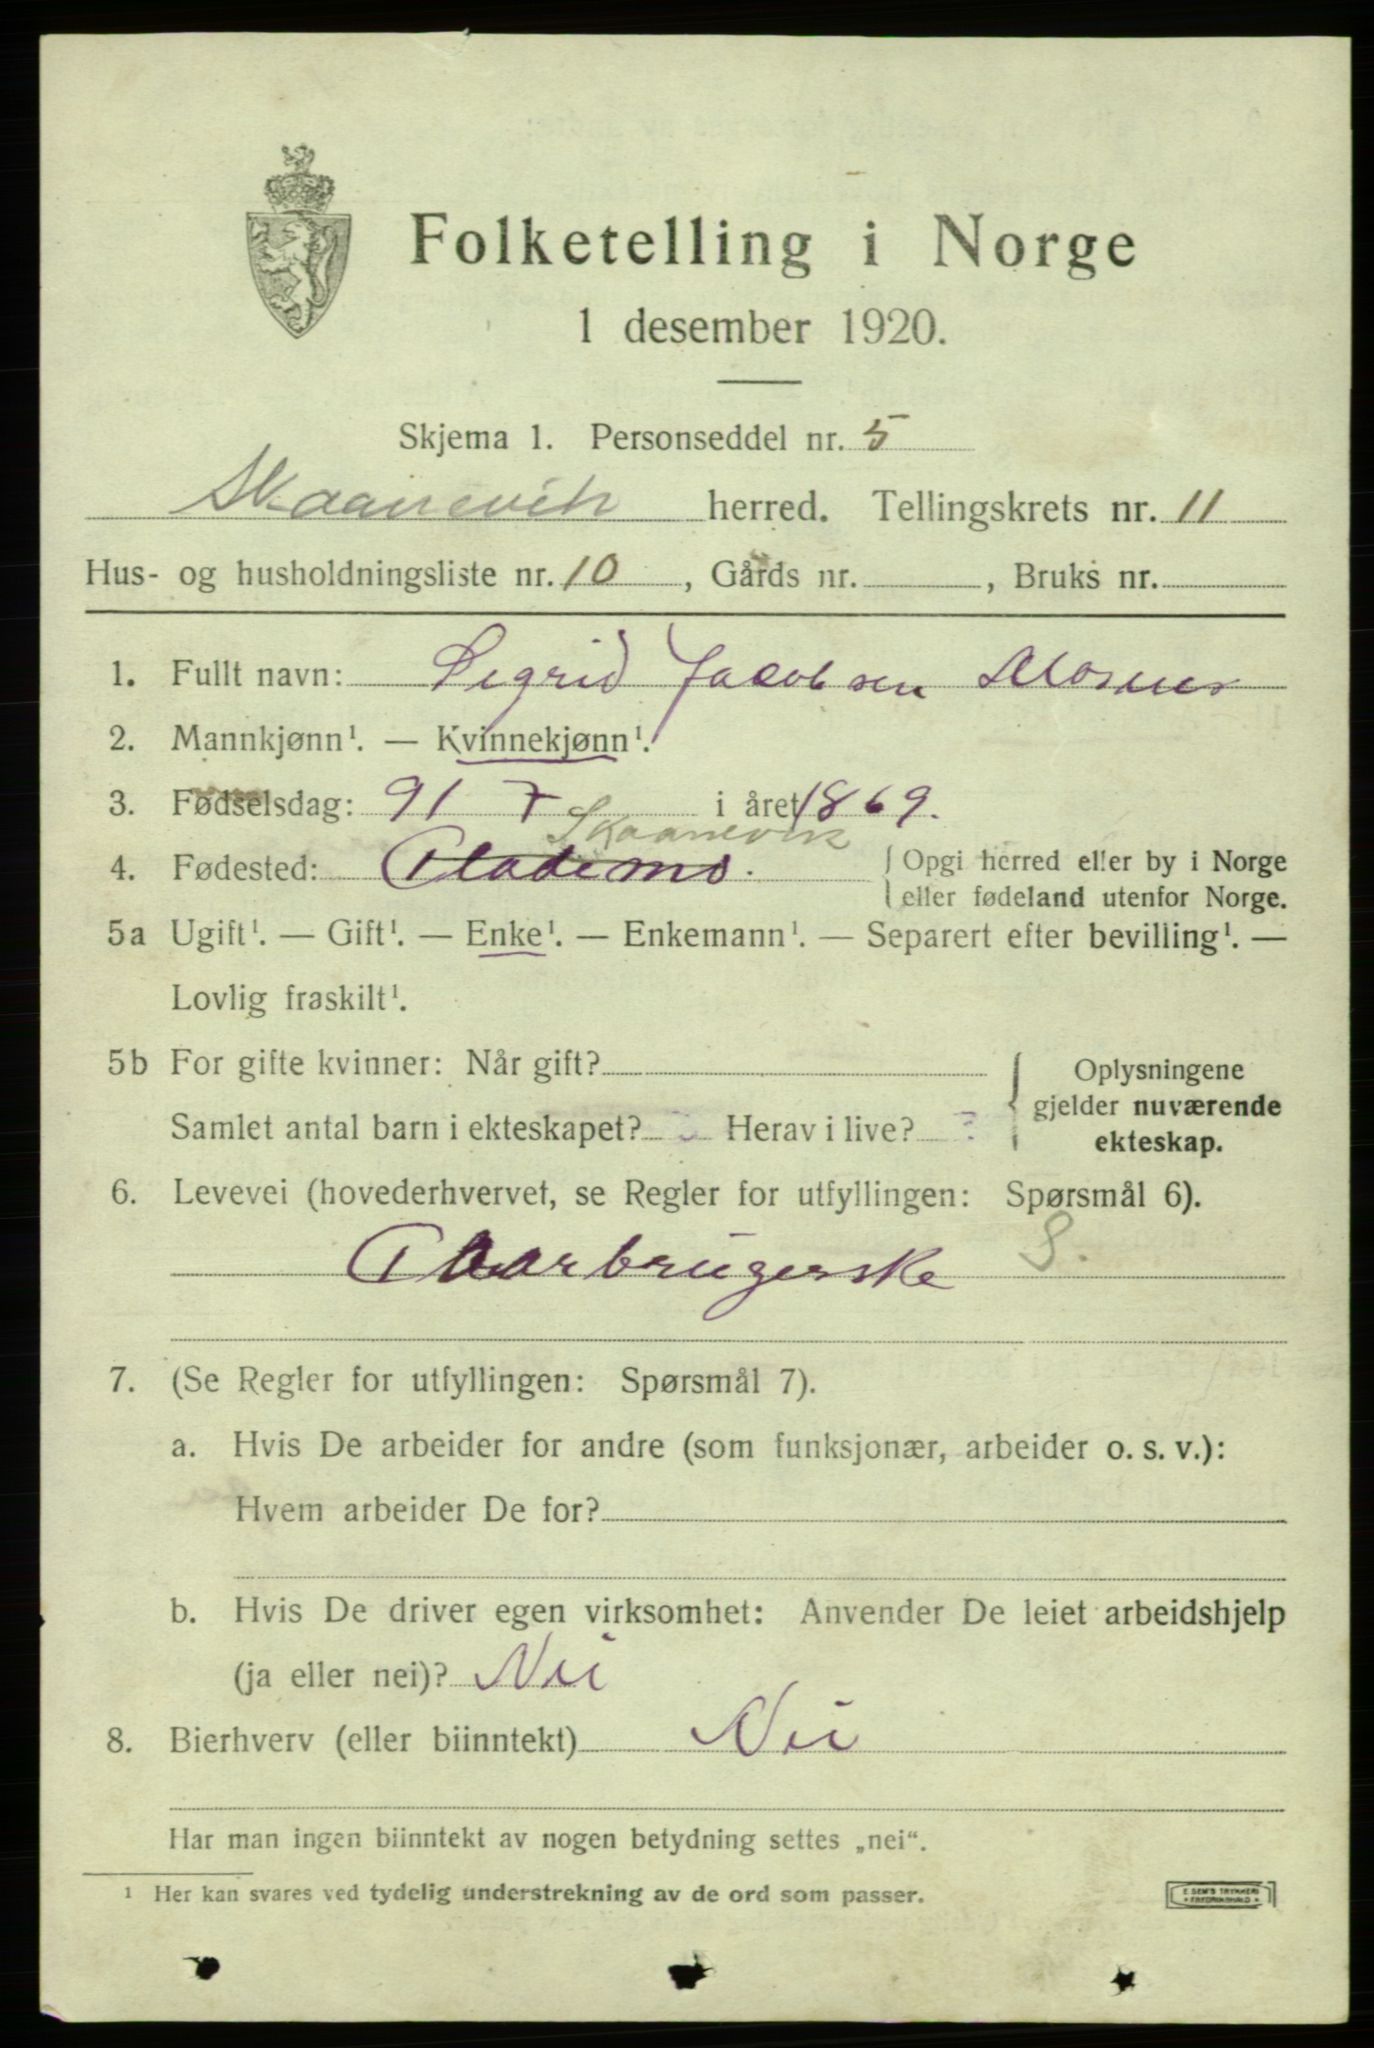 Folketelling i Norge
1 desember 1920.
Skjema 1. Personseddel nr. 5
Skaanevik herred. Tellingskrets nr. 11
Hus- og husholdningsliste nr. 10, Gårds nr. , Bruks nr.
1. Fullt navn: Sigrid Jacobsen
2. Mannkjønn¹. — Kvinnekjønn¹.
3. Fødselsdag: 7 i året 1869.
Skaanevik
4. Fødested: Opgi herred eller by i Norge
eller fødeland utenfor Norge.
5a Ugift¹. — Gift¹. — Enke¹. — Enkemann¹. — Separert efter bevilling¹. —
Lovlig fraskilt¹.
5b For gifte kvinner: Når gift? Oplysningene
gjelder nuværende
Samlet antal barn i ekteskapet? Herav i live?
ekteskap.
6. Levevei (hovederhvervet, se Regler for utfyllingen: Spørsmål 6).
S.
7. (Se Regler for utfyllingen: Spørsmål 7).
a. Hvis De arbeider for andre (som funksjonær, arbeider o. s. v.):
Hvem arbeider De for?
b. Hvis De driver egen virksomhet: Anvender De leiet arbeidshjelp
(ja eller nei)? Nei
8. Bierhverv (eller biinntekt) Nei
Har man ingen biinntekt av nogen betydning settes „nei“.
¹ Her kan svares ved tydelig understrekning av de ord som passer.